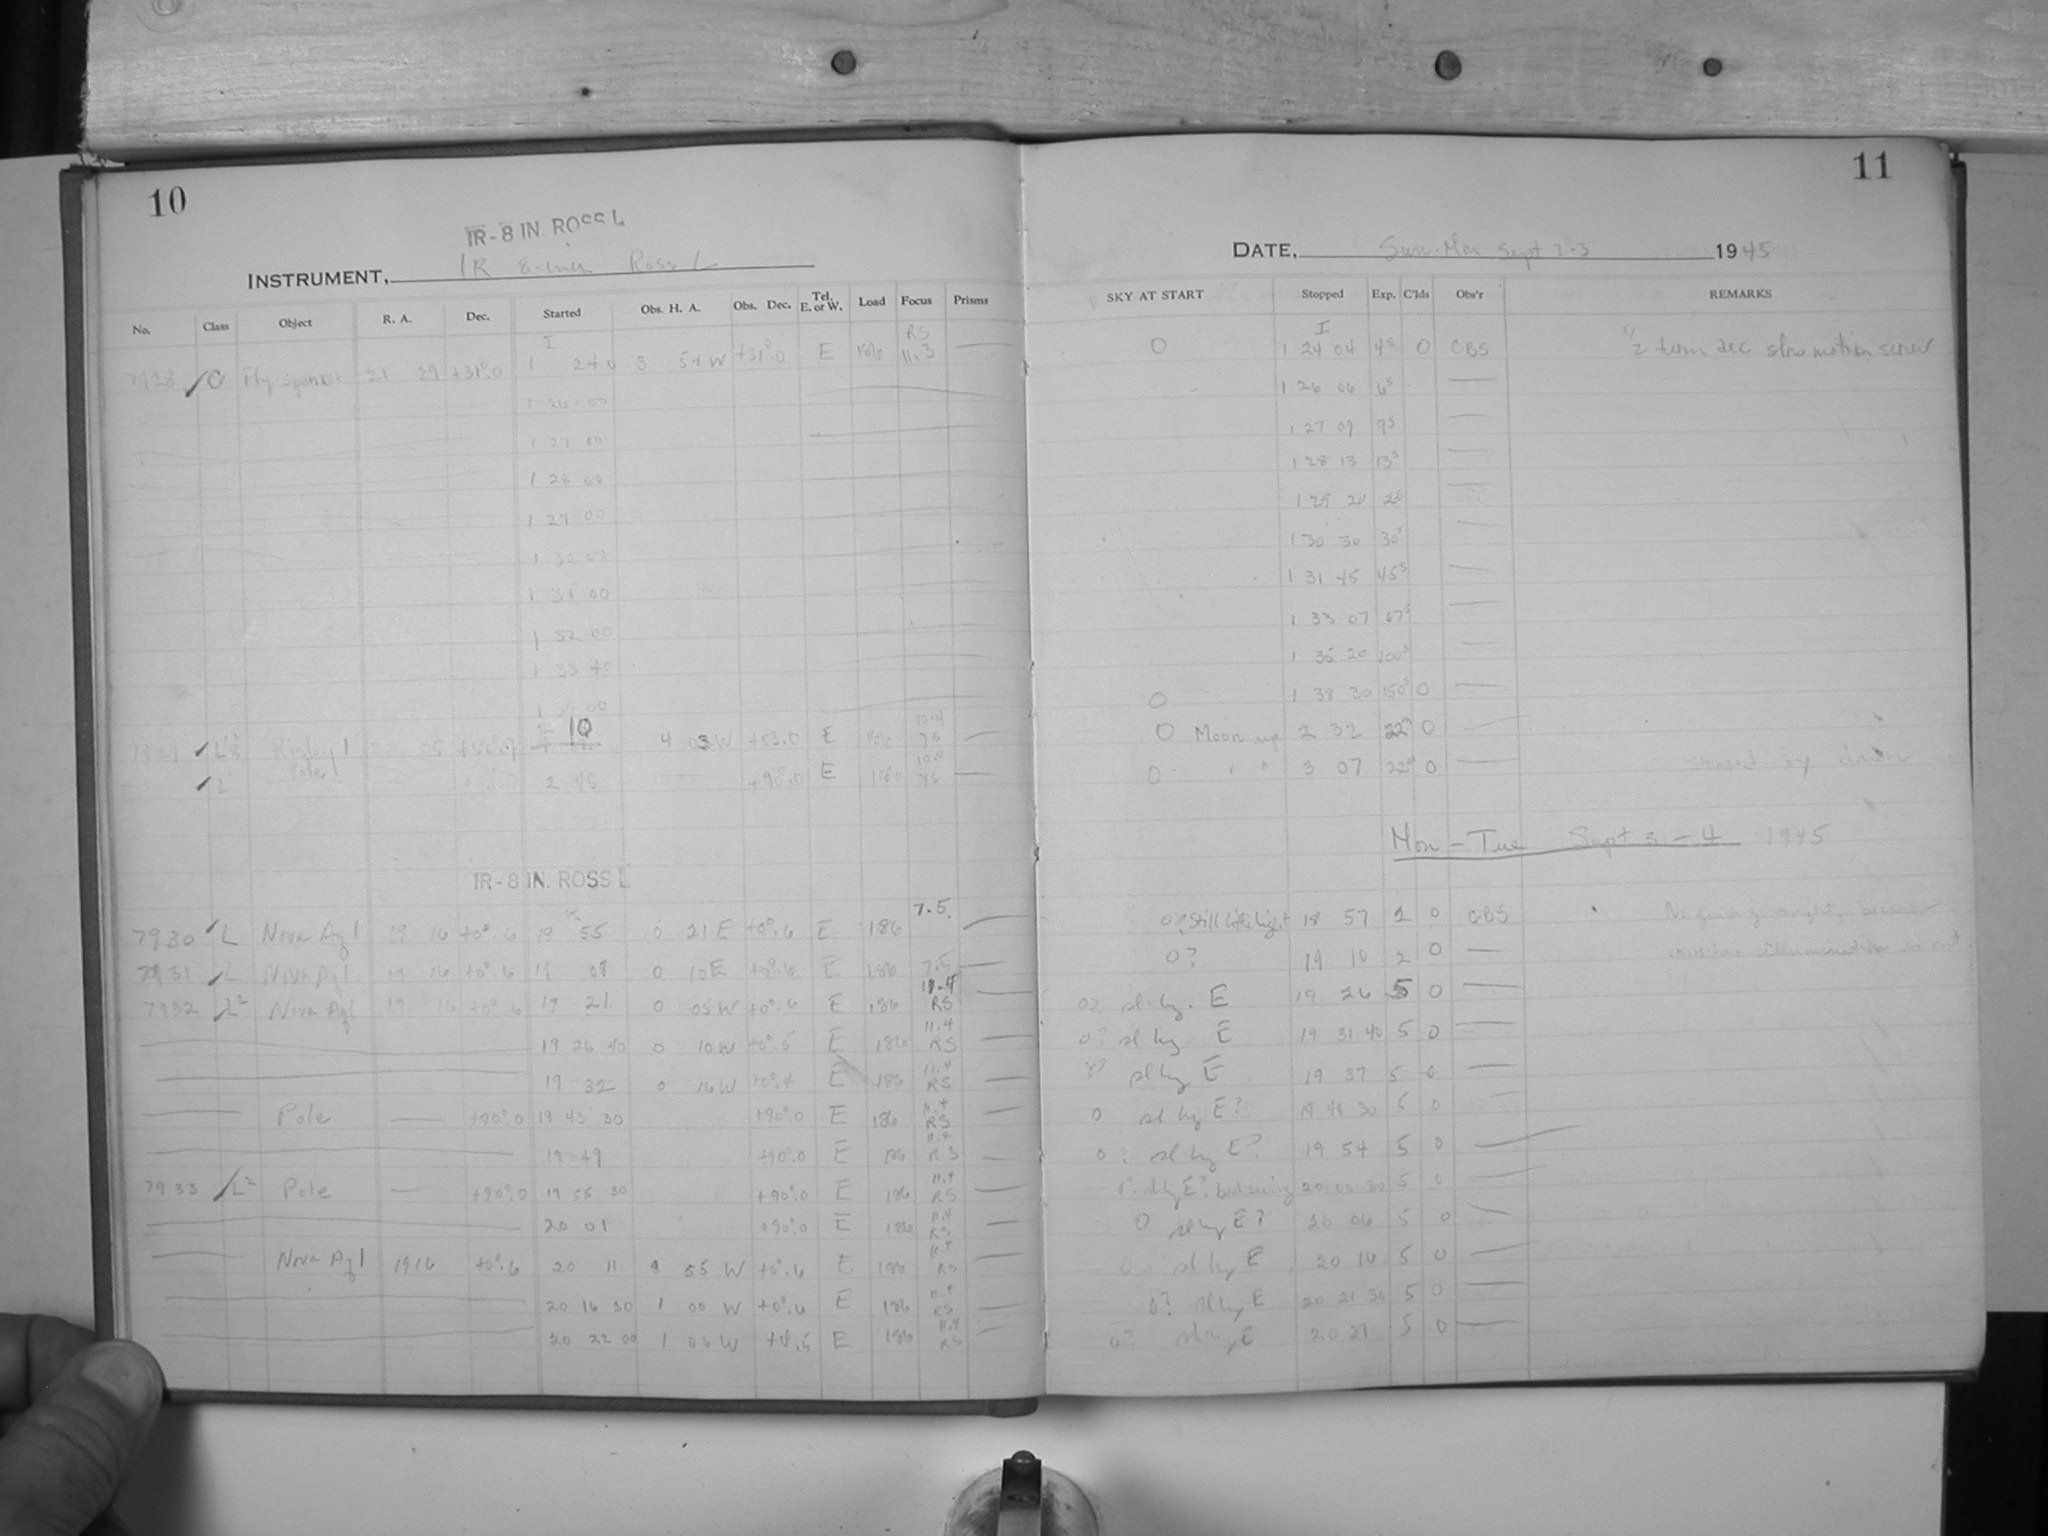 10
IR-8 IN ROSS L
INSTRUMENT, IR 8-inch Ross L
No. Class Object R. A. Dec. Started Obs. H. A. Obs. Dec. Tel. E. or W. Load Focus Prisms
7928 O 21 29 +31°.0 1 24 0 3 54 W +31°.0 E RS 11.3
1 26 00
1 27 00
1 28 00
1 29 00
1 31 00
1 32 00
1 33 40
10 4 03 W +53.0 E 10.4
L Pole 2 45 +90°.0 E
IR-8 IN. ROSS L
7930 L Nova Aql 19 16 +0°.6 18 55 0 21 E +0°.6 E 186 7.5
7931 L Nova Aql 19 16 +0°.6 19 08 0 10 E +0°.6 E 186 7.5
7932 L² Nova Aql 19 16 +0°.6 19 21 0 05 W +0°.6 E 186 11.4 RS
19 26 40 0 10 W +0°.5 E 186 11.4 RS
19 32 0 16 W +0°.4 E 186 11.4 RS
Pole +90°.0 19 43 30 +90°.0 E 186 11.4 RS
19 49 +90°.0 E 186 11.4 RS
7933 L² Pole +90°.0 19 55 30 +90°.0 E 186 11.4 RS
20 01 +90°.0 E 186 11.4 RS
Nova Aql 19 16 +0°.6 20 11 55 W +0°.6 E 186 11.4 RS
20 16 30 1 00 W +0°.6 E 186 11.4 RS
20 22 00 1 06 W +0°.5 E 186 11.4 RS
11
DATE, Sun-Mon Sept 2-3 1945
SKY AT START Stopped Exp. C'lds Obs'r REMARKS
0 1 24 04 4s 0 CBS ½ turn dec slow motion screw
1 26 06 6s
1 27 09 9s
1 28 13 13s
1 29 20 20s
1 30 30 30s
1 31 45 45s
1 33 07 67s
1 35 20 100s
0 1 38 30 150s 0
0 Moon up 2 32 22 0
0 " " 3 07 22 0
Mon - Tue Sept 3-4 1945
0? Still little light 18 57 2 0 CBS
0? 19 10 2 0
0? sl hzy. E 19 26 5 0
0? sl hzy E 19 31 40 5 0
0? sl hzy E 19 37 5 0
0 sl hzy E? 19 48 30 5 0
0? sl hzy E? 19 54 5 0
0? sl hzy E? bad seeing 20 00 30 5 0
0 sl hzy E? 20 06 5 0
0 sl hzy E 20 16 5 0
0? sl hzy E 20 21 30 5 0
0? sl hzy E 20 27 5 0